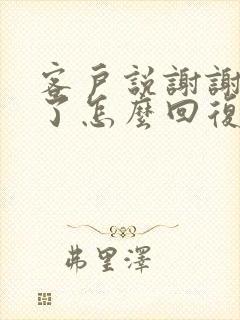 客戶說謝謝
了怎麼回復
弗里澤